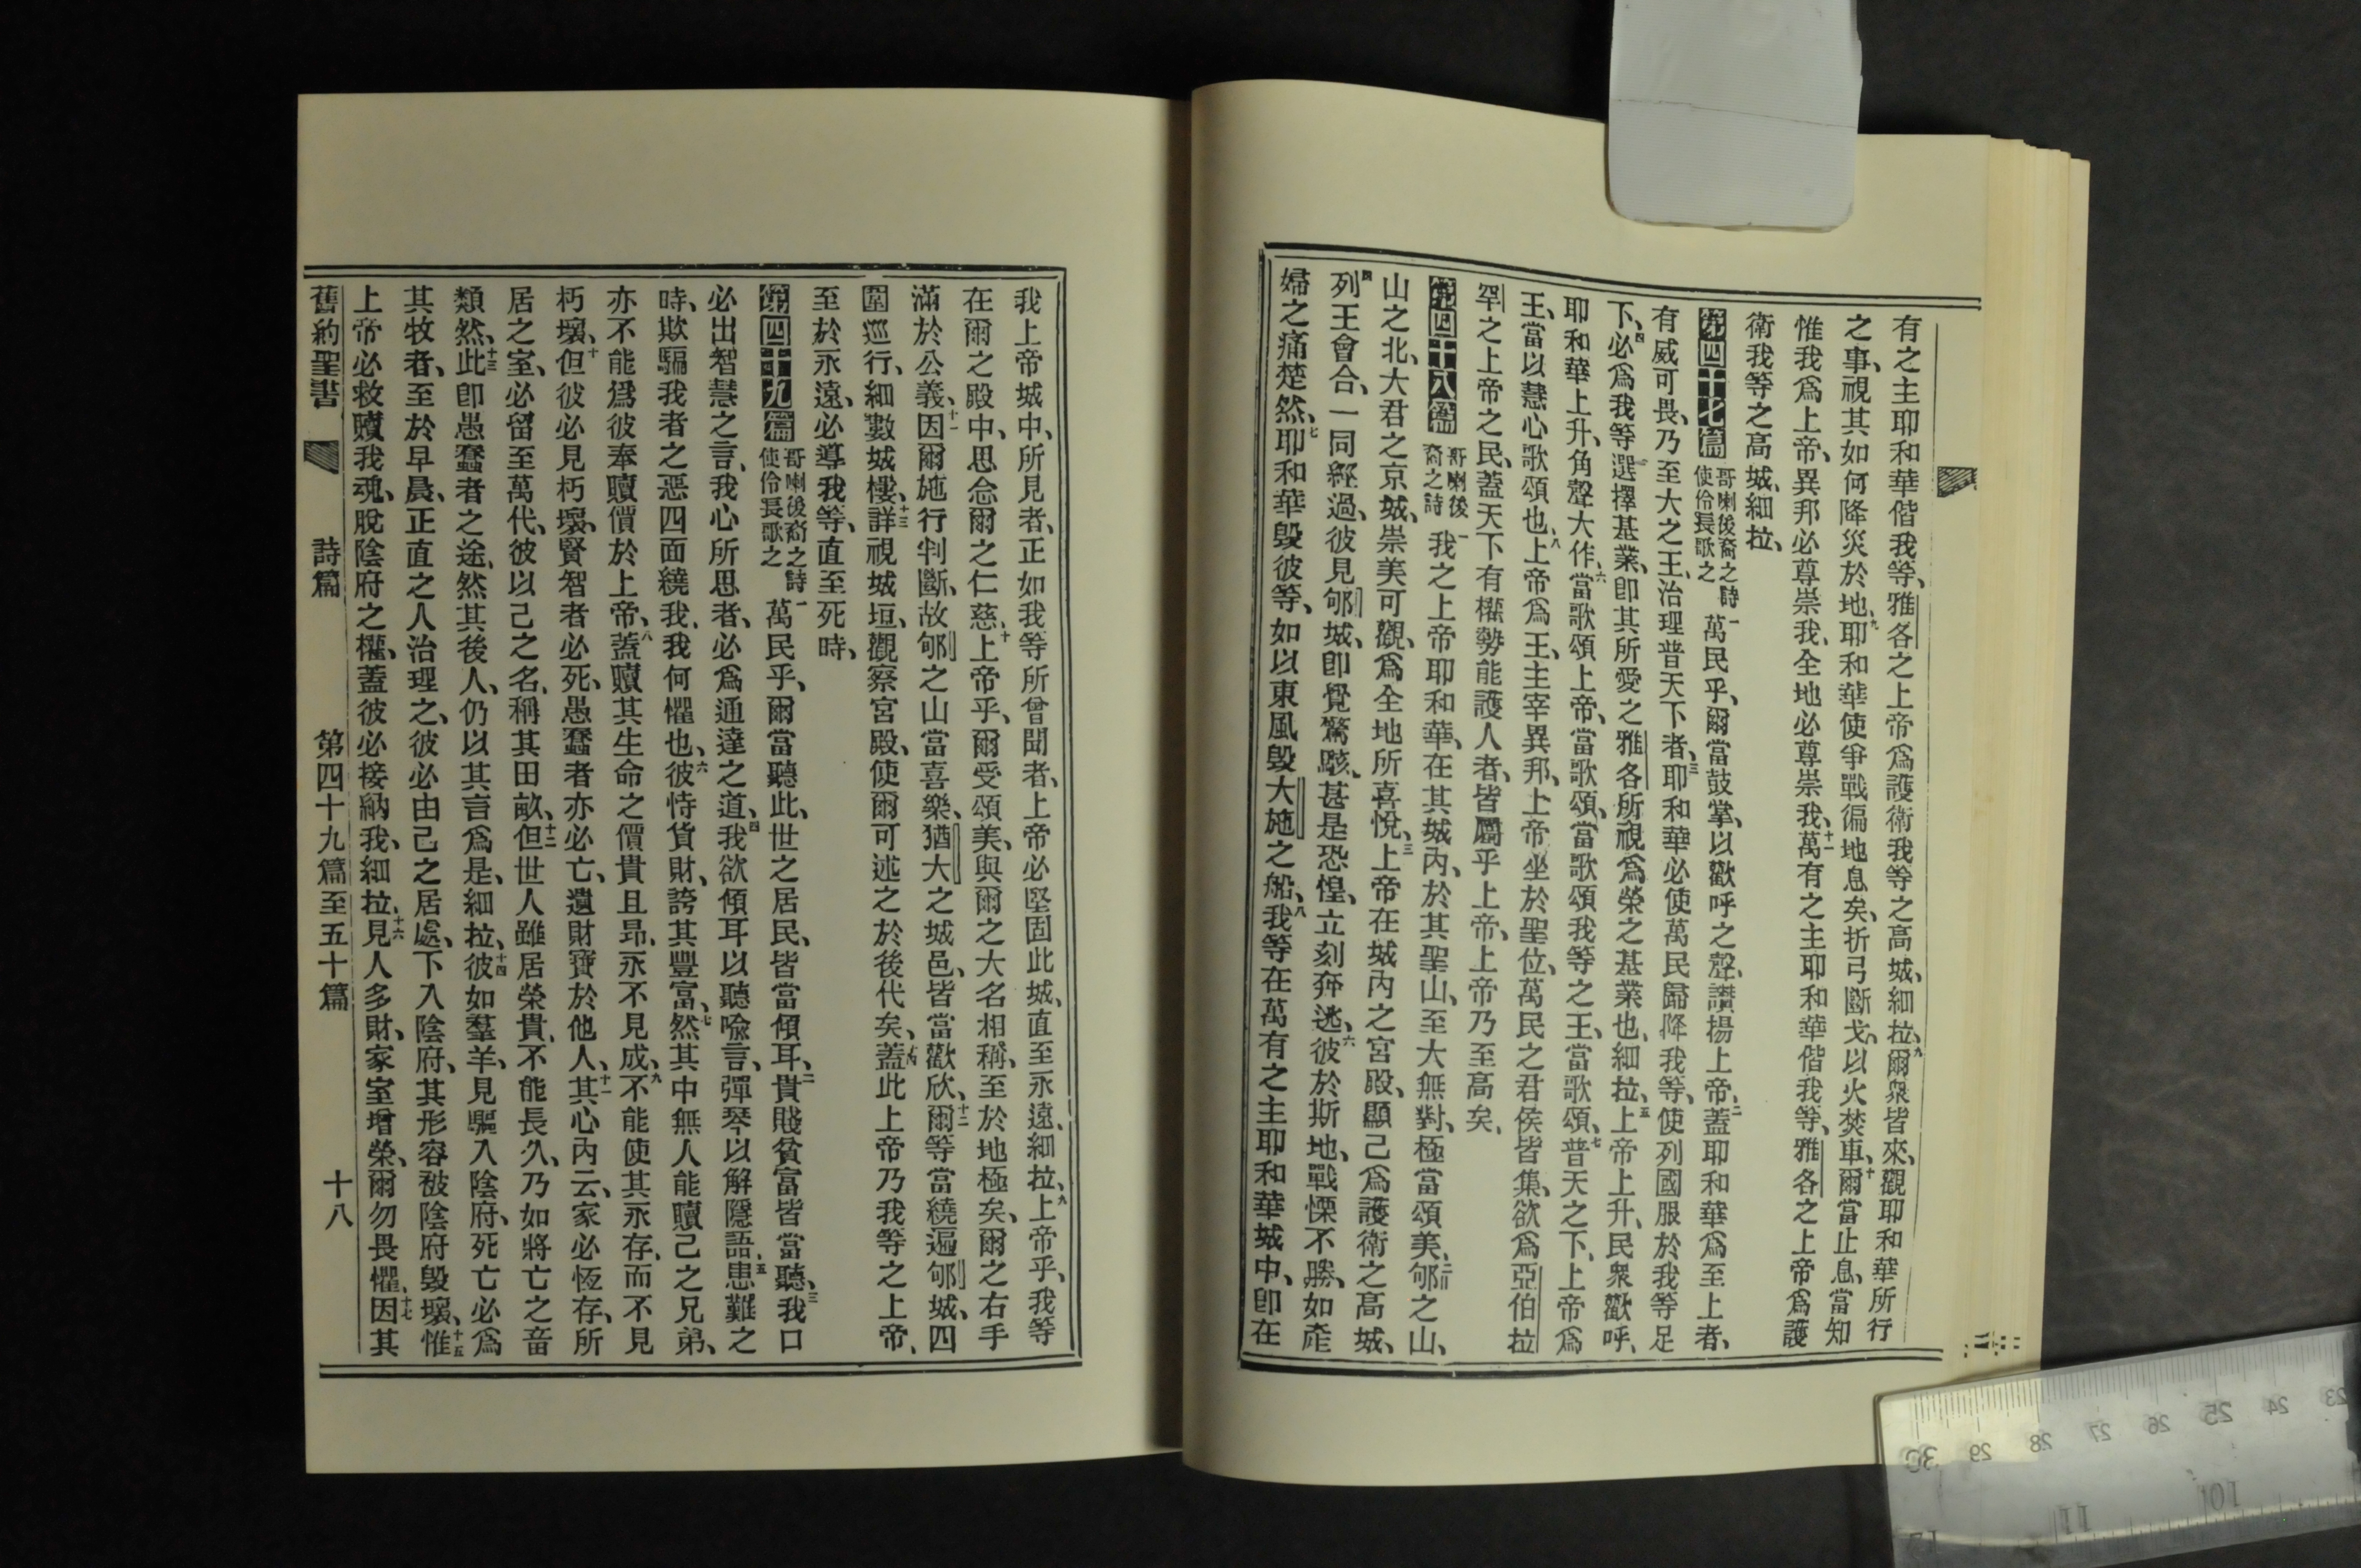 有之主耶和華偕我等、雅各之上帝爲護衛我等之高城、細拉、九爾衆皆來、觀耶和華所行
之事、視其如何降災於地、九耶和華使爭戰徧地息矣、折弓斷戈、以火焚車、十爾當止息、當知
惟我爲上帝、異邦必尊崇我、全地必尊崇我、十一萬有之主耶和華偕我等、雅各之上帝爲護
衛我等之高城、細拉、
第四十七篇 哥喇後裔之詩使伶長歌之 一萬民乎、爾當鼓掌、以歡呼之聲、讚揚上帝、二蓋耶和華爲至上者、
有威可畏、乃至大之王、治理普天下者、三耶和華必使萬民歸降我等、使列國服於我等足
下、四必爲我等選擇基業、卽其所愛之雅各、所視爲榮之基業也、細拉、五上帝上升、民衆歡呼、
耶和華上升、角聲大作、六當歌頌上帝、當歌頌、當歌頌我等之王、當歌頌、七普天之下、上帝爲
王、當以慧心歌頌也、八上帝爲王、主宰異邦、上帝坐於聖位、萬民之君侯皆集、欲爲亞伯拉
罕之上帝之民、蓋天下有權勢能護人者、皆屬乎上帝、上帝乃至高矣、
第四十八篇 哥喇後裔之詩 一我之上帝耶和華、在其城內、於其聖山、至大無對、極當頌美、二郇之山、
山之北、大君之京城、崇美可觀、爲全地所喜悅、三上帝在城內之宮殿、顯己爲護衛之高城、
四列王會合、一同經過、彼見郇城、卽覺驚駭、甚是恐惶、立刻奔逃、六彼於斯地、戰慄不勝、如產
婦之痛楚然、七耶和華毀彼等、如以東風毀大施之船、八我等在萬有之主耶和華城中、卽在
我上帝城中、所見者、正如我等所曾聞者、上帝必堅固此城、直至永遠、細拉、九上帝乎、我等
在爾之殿中、思念爾之仁慈、十上帝乎、爾受頌美、與爾之大名相稱、至於地極矣、爾之右手
滿於公義、十一因爾施行判斷、故郇之山當喜樂、猶大之城邑、皆當歡欣、十二爾等當繞遍郇城、四
圍巡行、細數城樓、十三詳視城垣、觀察宮殿、使爾可述之於後代矣、十四蓋此上帝乃我等之上帝、
至於永遠、必導我等、直至死時、
第四十九篇 哥喇後裔之詩使伶長歌之 一萬民乎、爾當聽此、世之居民、皆當傾耳、二貴賤貧富皆當聽、三我口
必出智慧之言、我心所思者、必爲通達之道、四我欲傾耳以聽喩言、彈琴以解隱語、五患難之
時、欺騙我者之惡四面繞我、我何懼也、六彼恃貨財、誇其豐富、七然其中無人能贖己之兄弟、
亦不能爲彼奉贖價於上帝、八蓋贖其生命之價貴且昻、永不見成、九不能使其永存、而不見
朽壞、十但彼必見朽壞、賢智者必死、愚蠢者亦必亡、遺財寶於他人、十一其心內云、家必恆存、所
居之室、必留至萬代、彼以己之名、稱其田畝、十二但世人雖居榮貴、不能長久、乃如將亡之畜
類然、十三此卽愚蠢者之途、然其後人、仍以其言爲是、細拉、十四彼如羣羊、見驅入陰府、死亡必爲
其牧者、至於早晨、正直之人治理之、彼必由己之居處、下入陰府、其形容被陰府毀壞、十五惟
上帝必救贖我魂、脫陰府之權、蓋彼必接納我、細拉、十六見人多財、家室增榮、爾勿畏懼、十七因其
舊約聖書 詩篇 第四十九篇至五十篇 十八
23 24 25 26 27 28 29 30
101 11